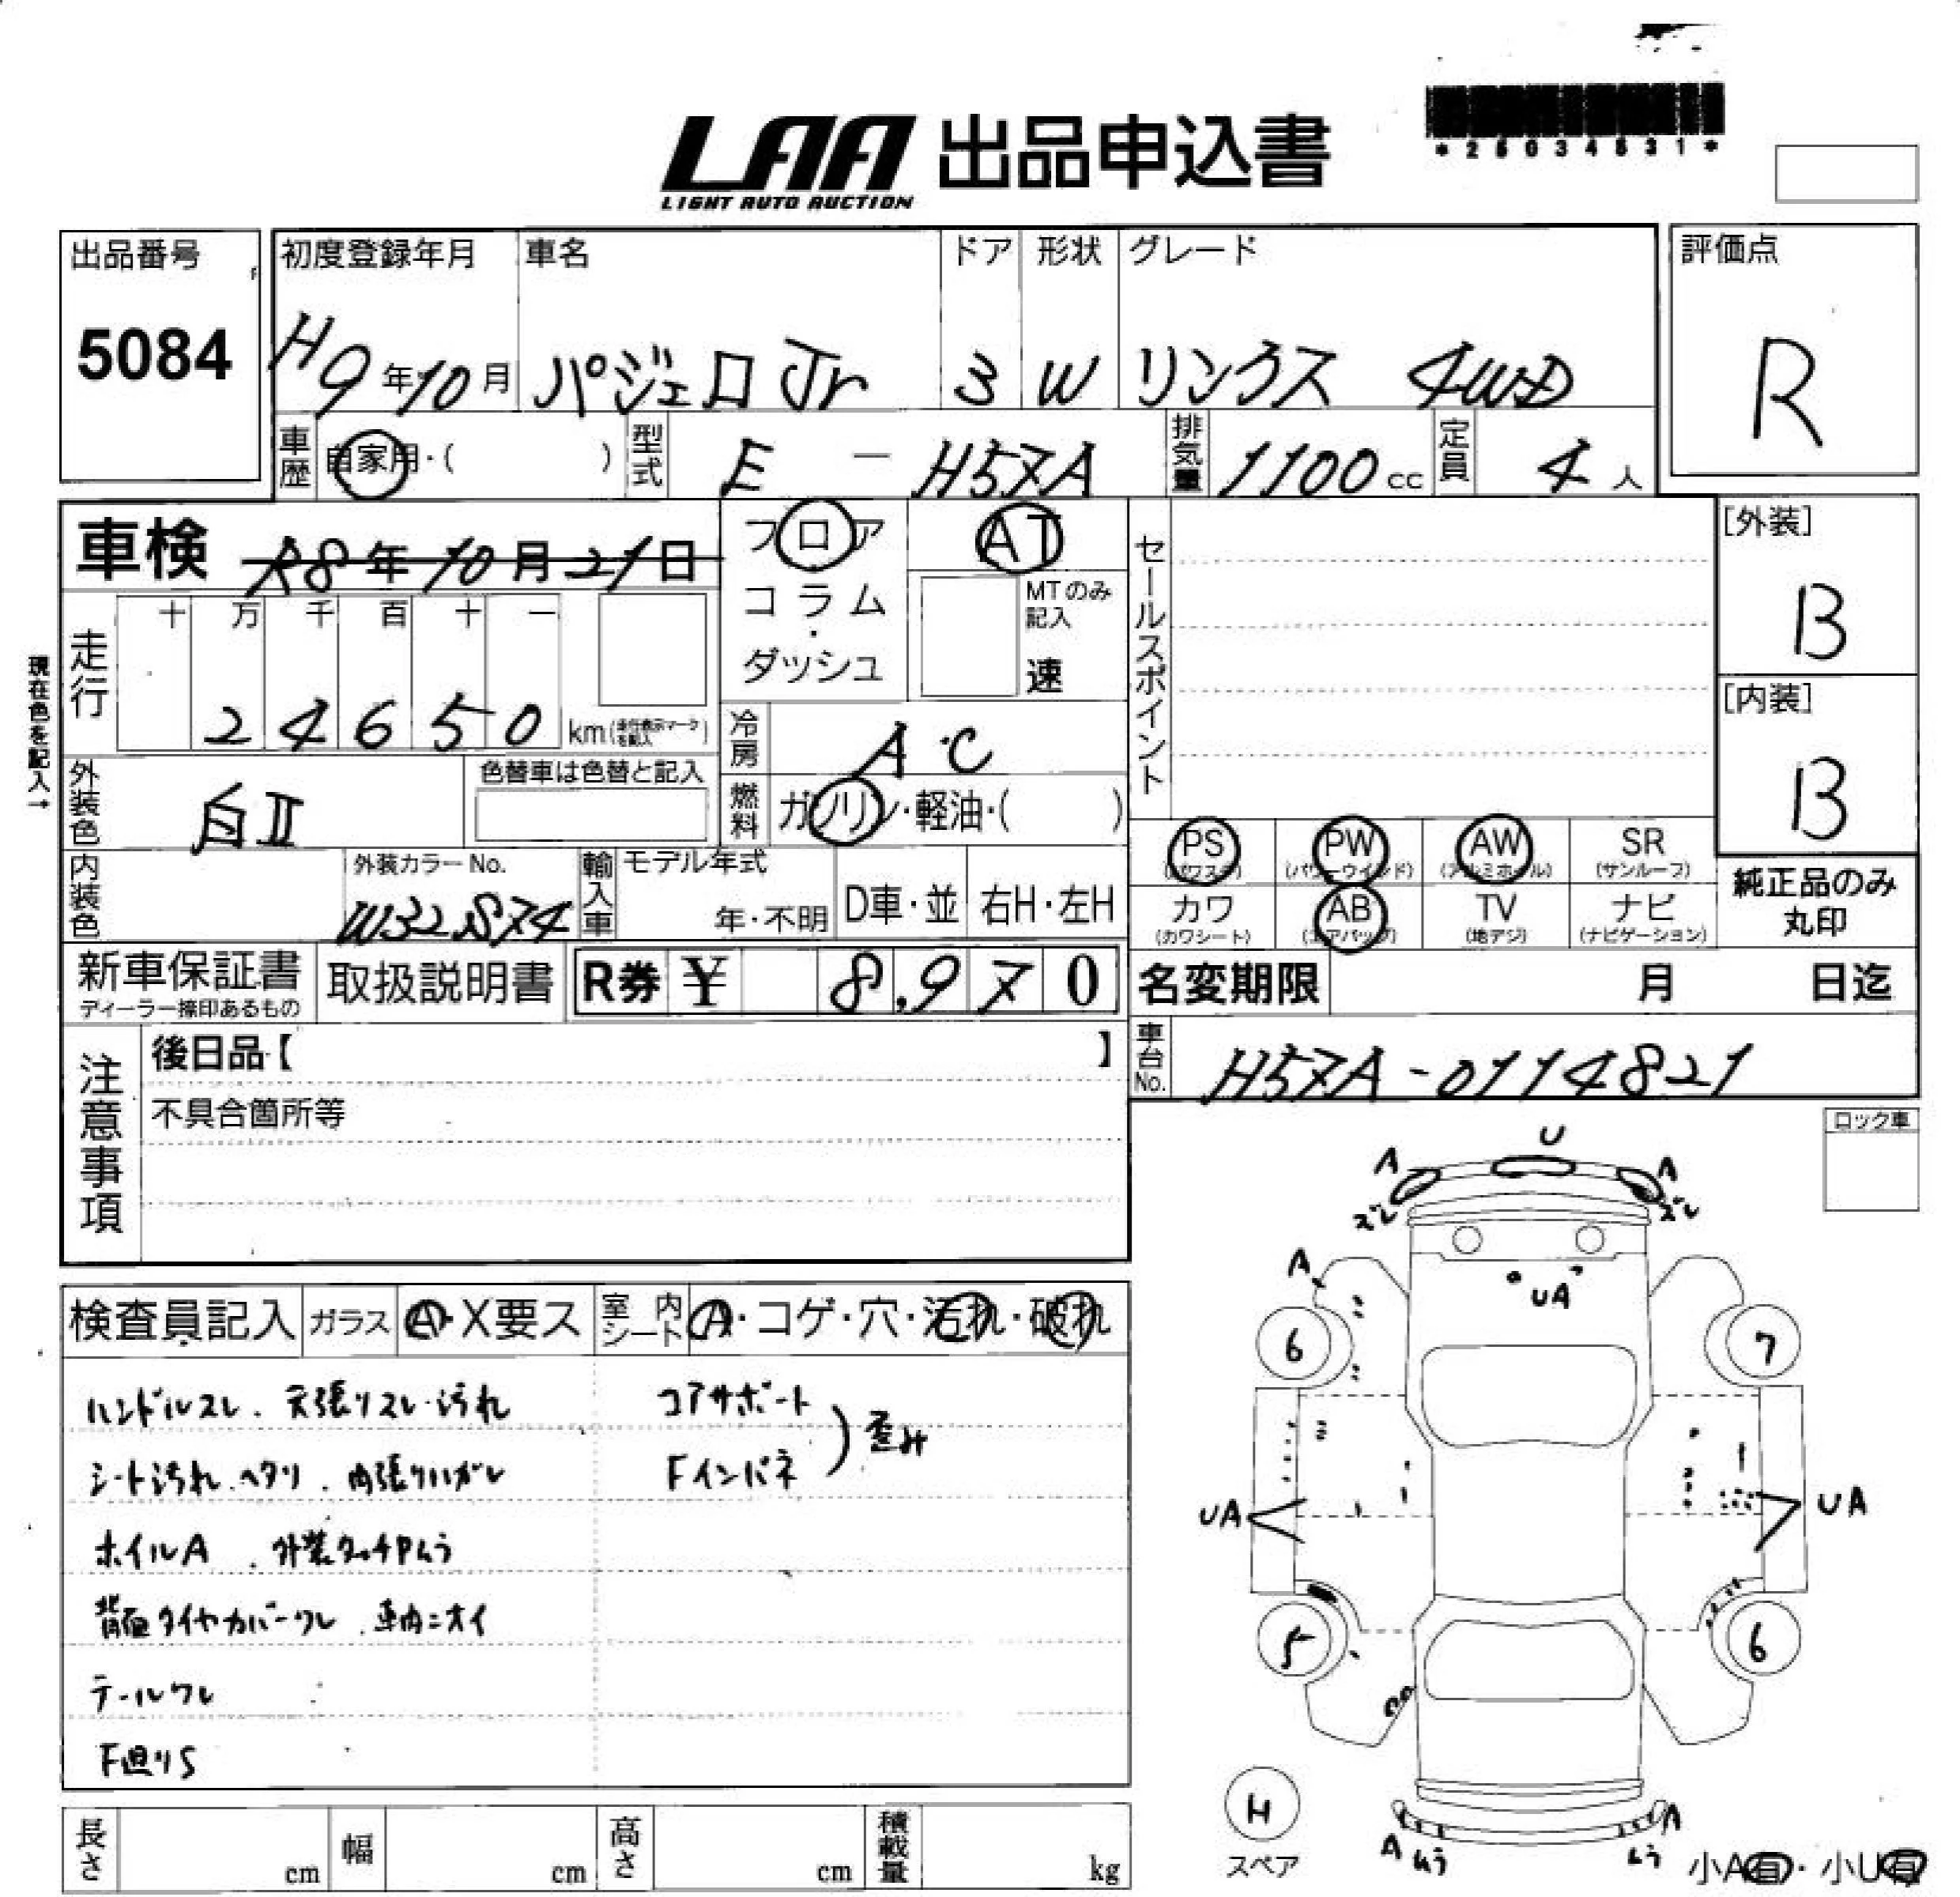 *25034831*
LAA 出品申込書
LIGHT AUTO AUCTION
出品番号
5084
初度登録年月
H9年10月
車名
パジェロ Jr
ドア
3
形状
W
グレード
リンクス 4WD
評価点
R
車歴 自家用・( )
型式 E - H57A
排気量 1100 cc
定員 4 人
車検 R8年10月21日
フロア
コラム
・
ダッシュ
AT
MTのみ
記入
速
セールスポイント
[外装]
B
[内装]
B
現在色を記入→
走行
十 万 千 百 十 一
2 4 6 5 0 km(走行表示マークを記入)
冷房 A・C
外装色 白II
色替車は色替と記入
燃料 ガソリン・軽油・( )
内装色
外装カラーNo.
W32 S74
輸入車
モデル年式
年・不明
D車・並
右H・左H
PS
(パワステ)
PW
(パワーウインド)
AW
(アルミホイル)
SR
(サンルーフ)
カワ
(カワシート)
AB
(エアバッグ)
TV
(地デジ)
ナビ
(ナビゲーション)
純正品のみ
丸印
新車保証書
ディーラー捺印あるもの
取扱説明書
R券 ¥ 8,970
名変期限 月 日迄
車台No. H57A-0114821
注意事項
後日品【 】
不具合箇所等
ロック車
検査員記入
ガラス A・X要ス
室内シート A・コゲ・穴・汚れ・破れ
ハンドルスレ、天張りスレ・汚れ
シート汚れ、ヘタリ、内張りハガレ
ホイルA、外装タッチPムラ
背面タイヤカバーワレ、車内ニオイ
テールワレ
F廻りS
コアサポート
Fインパネ
歪み
U
A
A
ズレ
ズレ
A
UA
6
7
UA
UA
5
6
H
スペア
A
A
ムラ
ムラ
小A有・小U有
長さ cm
幅 cm
高さ cm
積載量 kg